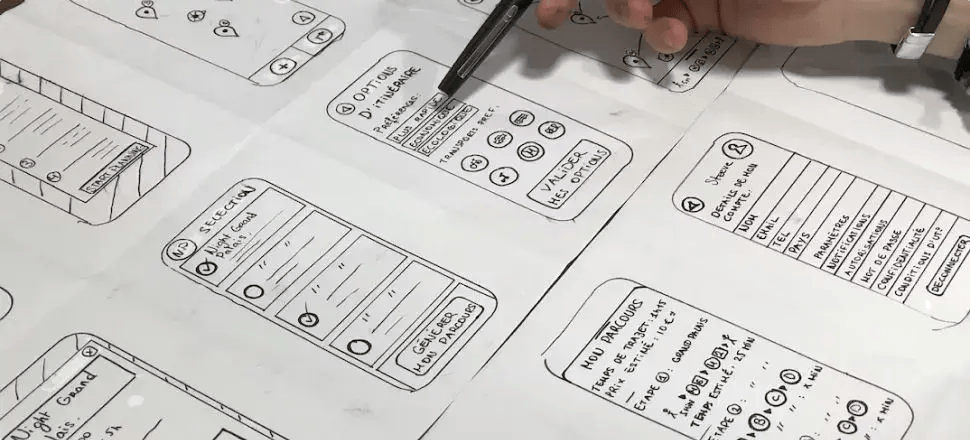 START PLANNING
OPTIONS
D'ITINÉRAIRE
Préférences:
PLUS RAPIDE
ECONOMIQUE
ECOLOGIQUE
TRANSPORTS PREF.
VALIDER
MES OPTIONS
SELECTION
Night Grand
Palais.
"
"
"
GÉNÉRER
MON PARCOURS
DÉTAILS DE MON
COMPTE.
NOM
EMAIL
TEL
PAYS
PARAMÈTRES
NOTIFICATIONS
AUTORISATIONS
MOT DE PASSE
CONFIDENTIALITÉ
CONDITIONS D'UT°
DECONNECTER
MON PARCOURS
TEMPS DE TRAJET: 1H15
PRIX ESTIMÉ: 10€
ETAPE 1: GRAND PALAIS
5MIN
TEMPS ESTIMÉ: 25 MIN
ETAPE 2: " "
" : X MIN
" : X MIN
Night Grand